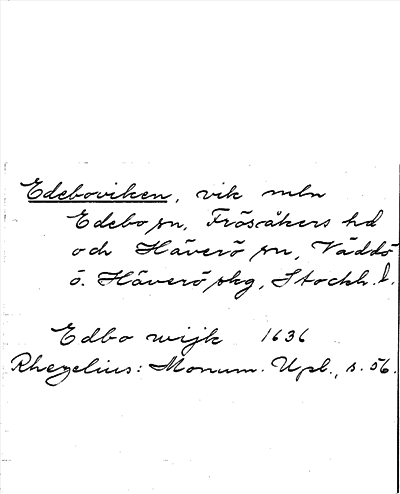 Edeboviken, vik mln
Edebo sn, Frösåkers hd
och Häverö sn, Väddö
o. Häverö skg, Stockh. l.
Edbo wijk 1636
Rhezelius: Monum. Upl., s. 56.